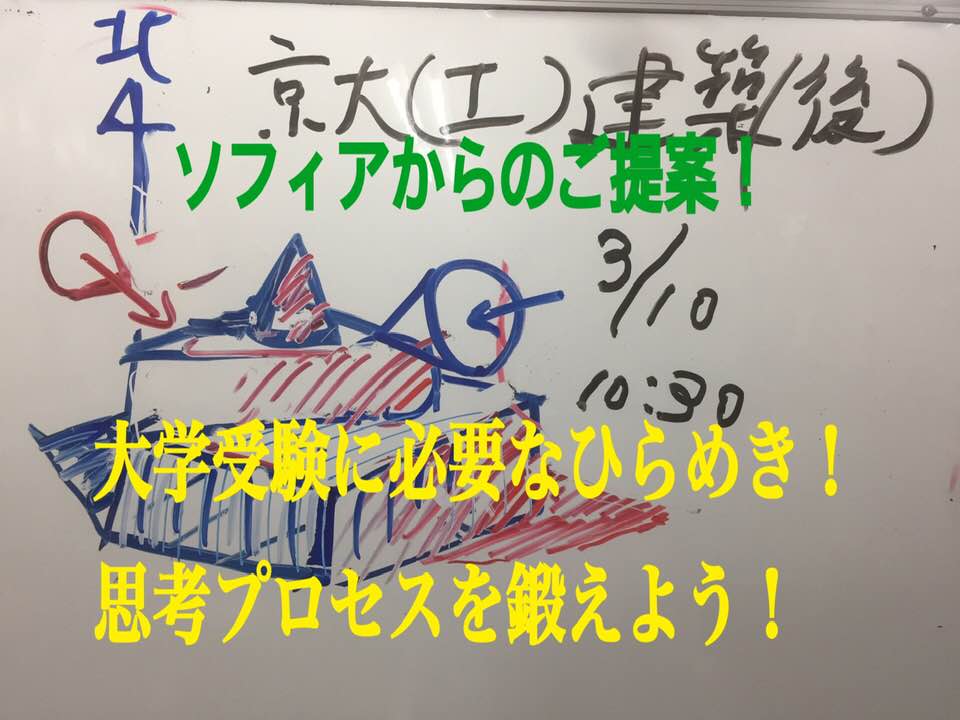 北
4
京大(工)建築(後)
ソフィアからのご提案！
3/10
10:30
大学受験に必要なひらめき！
思考プロセスを鍛えよう！